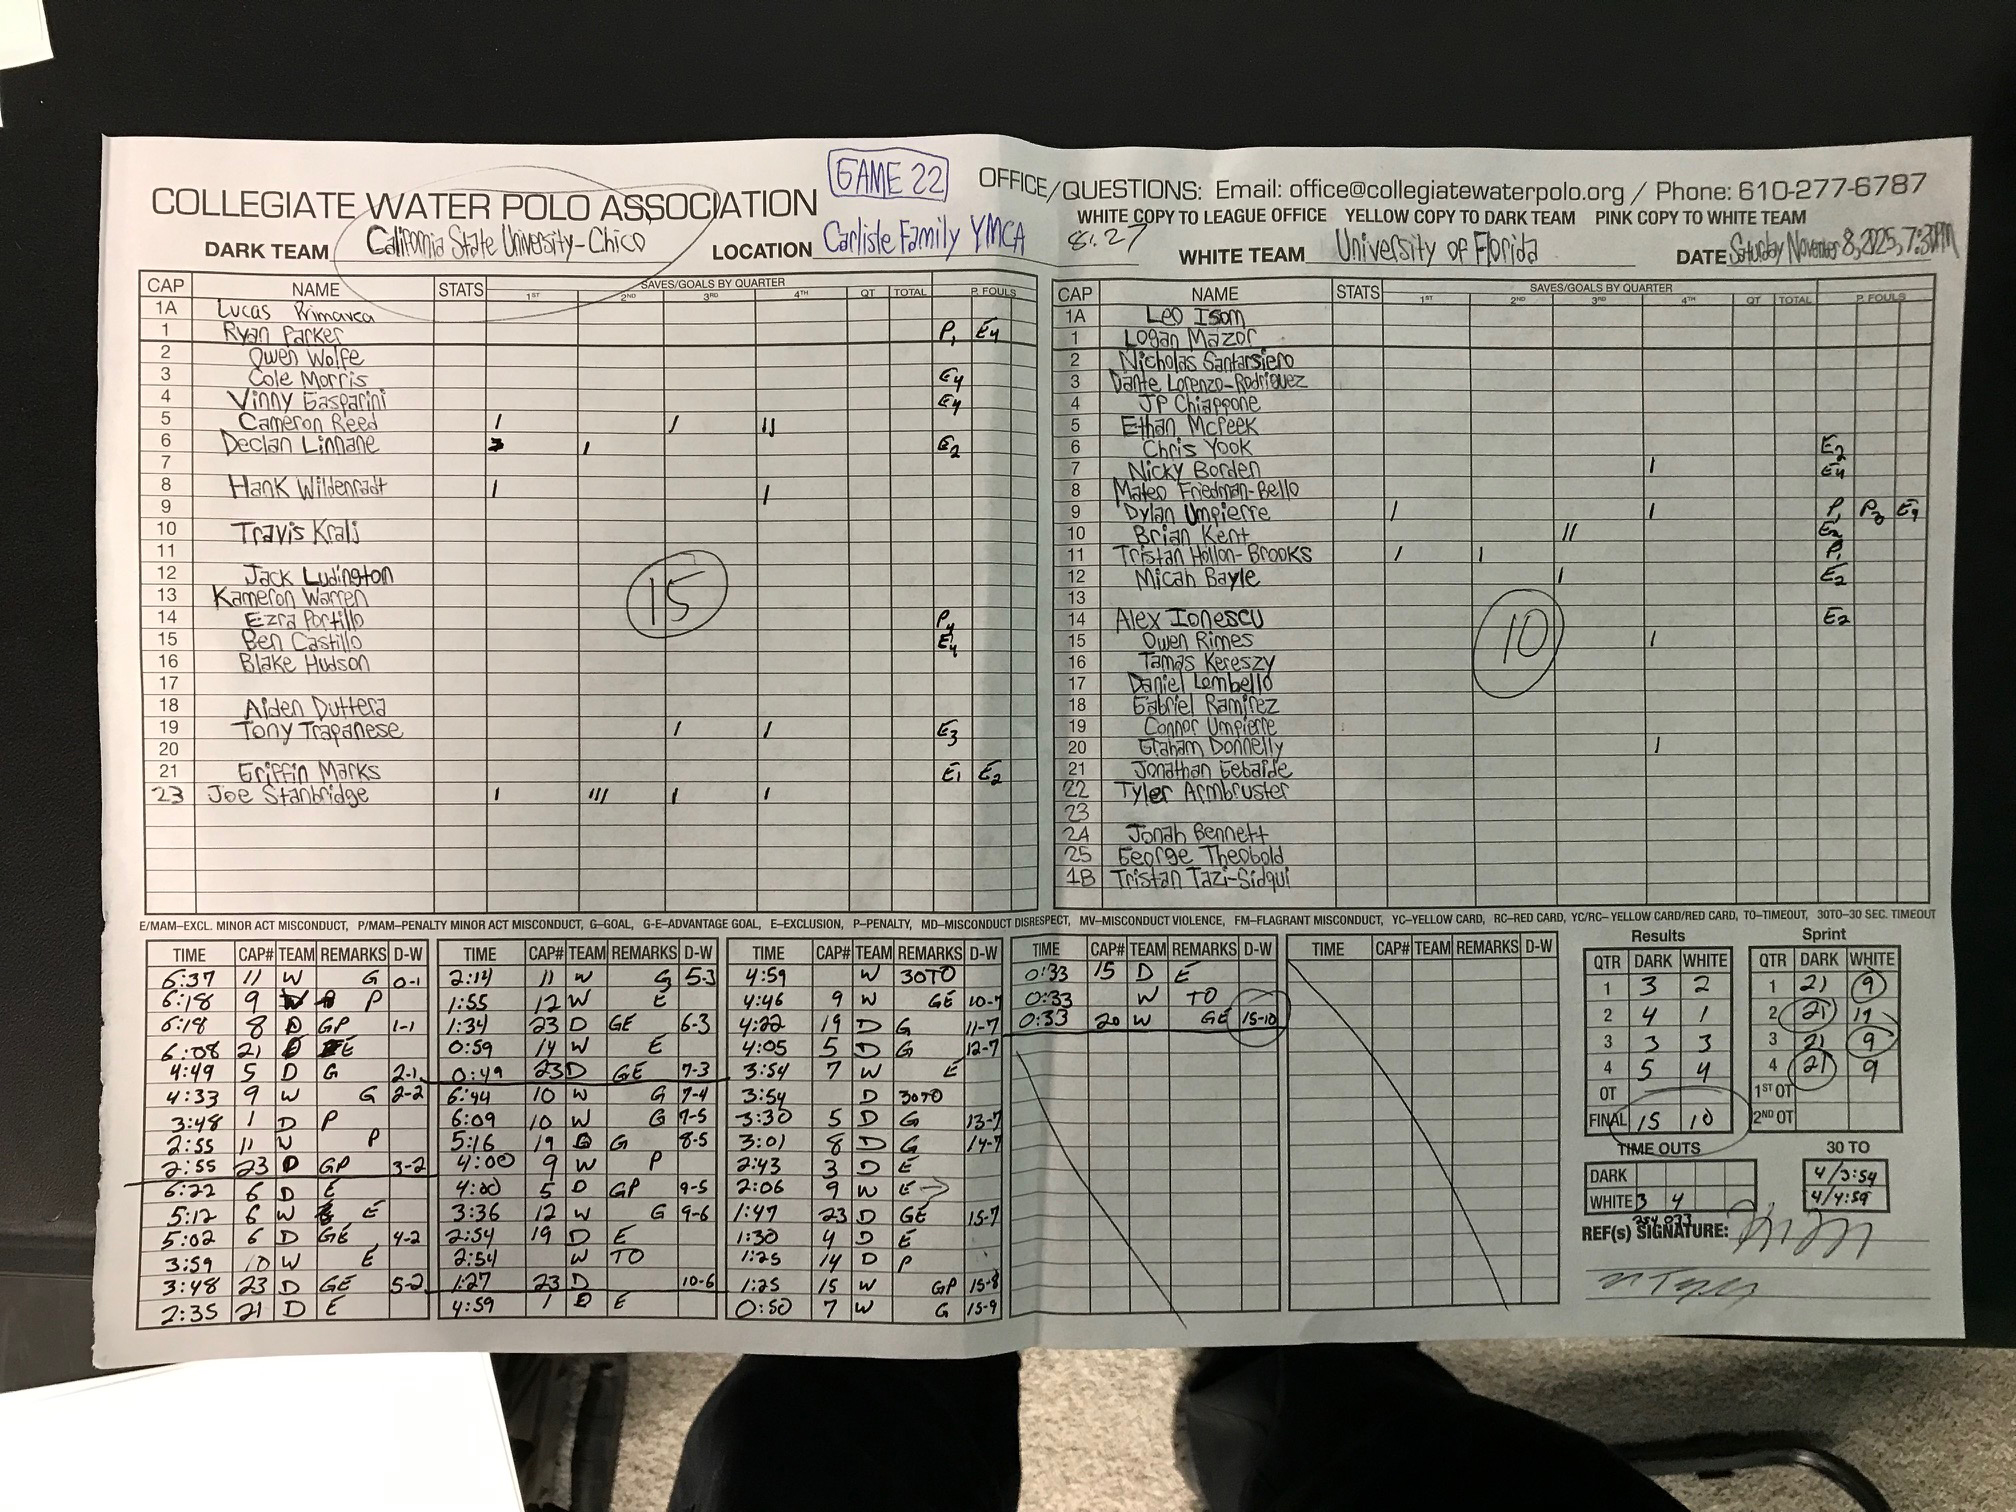 GAME 22
OFFICE/QUESTIONS: Email: office@collegiatewaterpolo.org / Phone: 610-277-6787
COLLEGIATE WATER POLO ASSOCIATION
WHITE COPY TO LEAGUE OFFICE YELLOW COPY TO DARK TEAM PINK COPY TO WHITE TEAM
8:27
DARK TEAM California State University-Chico LOCATION Carlisle Family YMCA WHITE TEAM University of Florida DATE Saturday November 8, 2025, 7:30PM
CAP NAME STATS SAVES/GOALS BY QUARTER P. FOULS
1ST 2ND 3RD 4TH OT TOTAL
1A Lucas Primavca
1 Ryan Parker P1 E4
2 Owen Wolfe
3 Cole Morris E4
4 Vinny Gasparini E4
5 Cameron Reed I I II
6 Declan Linnane I E2
7
8 Hank Wildenradt I I
9
10 Travis Kralj
11
12 Jack Ludington
13 Kameron Warren
14 Ezra Portillo P4
15 Ben Castillo E4
16 Blake Hudson
17
18 Aiden Duttera
19 Tony Trapanese I I E3
20
21 Griffin Marks E1 E2
23 Joe Stanbridge I III I I
15
CAP NAME STATS SAVES/GOALS BY QUARTER P. FOULS
1ST 2ND 3RD 4TH OT TOTAL
1A Leo Isom
1 Logan Mazor
2 Nicholas Santarsiero
3 Dante Lorenzo-Rodriguez
4 JP Chiappone
5 Ethan McPeek
6 Chris Yook E2
7 Nicky Borden I E4
8 Mateo Friedman-Bello
9 Dylan Umpierre I I P1 P3 E4
10 Brian Kent II E2
11 Tristan Hollon-Brooks I I P1
12 Micah Bayle I E2
13
14 Alex Ionescu E2
15 Owen Rimes I
16 Tamas Kereszy
17 Daniel Lombello
18 Gabriel Ramirez
19 Connor Umpierre
20 Graham Donnelly I
21 Jonathan Gebaide
22 Tyler Armbruster
23
24 Jonah Bennett
25 George Theobold
1B Tristan Tazi-Sidqui
10
E/MAM-EXCL. MINOR ACT MISCONDUCT, P/MAM-PENALTY MINOR ACT MISCONDUCT, G-GOAL, G-E-ADVANTAGE GOAL, E-EXCLUSION, P-PENALTY, MD-MISCONDUCT DISRESPECT, MV-MISCONDUCT VIOLENCE, FM-FLAGRANT MISCONDUCT, YC-YELLOW CARD, RC-RED CARD, YC/RC-YELLOW CARD/RED CARD, TO-TIMEOUT, 30TO-30 SEC. TIMEOUT
TIME CAP# TEAM REMARKS D-W
6:37 11 W G 0-1
6:18 9 W P
6:18 8 D GP 1-1
6:08 21 D E
4:49 5 D G 2-1
4:33 9 W G 2-2
3:48 1 D P
2:55 11 W P
2:55 23 D GP 3-2
6:22 6 D E
5:12 6 W E
5:02 6 D GE 4-2
3:59 10 W E
3:48 23 D GE 5-2
2:35 21 D E
TIME CAP# TEAM REMARKS D-W
2:14 11 W G 5-3
1:55 12 W E
1:34 23 D GE 6-3
0:59 14 W E
0:49 23 D GE 7-3
6:44 10 W G 7-4
6:09 10 W G 7-5
5:16 19 D G 8-5
4:00 9 W P
4:00 5 D GP 9-5
3:36 12 W G 9-6
2:54 19 D E
2:54 W TO
1:27 23 D 10-6
4:59 1 D E
TIME CAP# TEAM REMARKS D-W
4:59 W 30TO
4:46 9 W GE 10-7
4:22 19 D G 11-7
4:05 5 D G 12-7
3:54 7 W E
3:54 D 30TO
3:30 5 D G 13-7
3:01 8 D G 14-7
2:43 3 D E
2:06 9 W E →
1:47 23 D GE 15-7
1:30 4 D E
1:25 14 D P
1:25 15 W GP 15-8
0:50 7 W G 15-9
TIME CAP# TEAM REMARKS D-W
0:33 15 D E
0:33 W TO
0:33 20 W GE 15-10
TIME CAP# TEAM REMARKS D-W
Results
QTR DARK WHITE
1 3 2
2 4 1
3 3 3
4 5 4
OT
FINAL 15 10
Sprint
QTR DARK WHITE
1 21 9
2 21 19
3 21 9
4 21 9
1ST OT
2ND OT
TIME OUTS
DARK
WHITE 3 4
254 033
30 TO
4/3:54
4/4:59
REF(s) SIGNATURE: